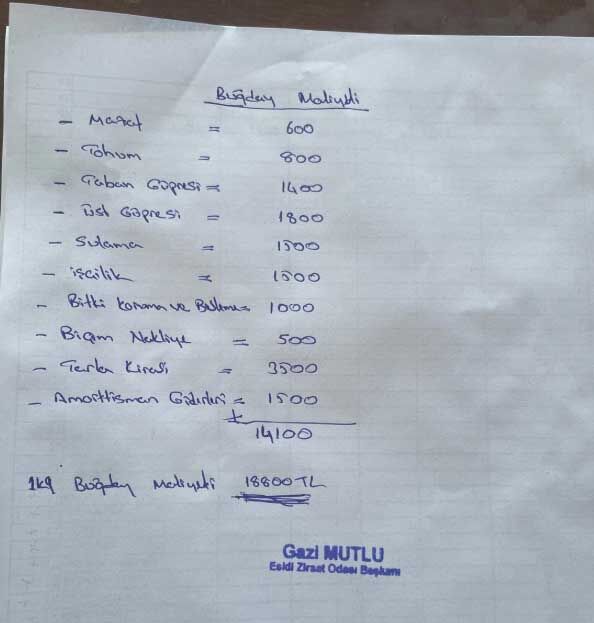 Buğday Maliyeti
- Mazot = 600
- Tohum = 800
- Taban Gübresi = 1400
- Üst Gübresi = 1800
- Sulama = 1500
- işçilik = 1500
- Bitki Koruma ve Besleme = 1000
- Biçim Nakliye = 500
- Tarla Kirası = 3500
- Amortisman Giderleri = 1500
+
14100
1kg Buğday Maliyeti 18800 TL
Gazi MUTLU
Esidi Ziraat Odası Başkanı